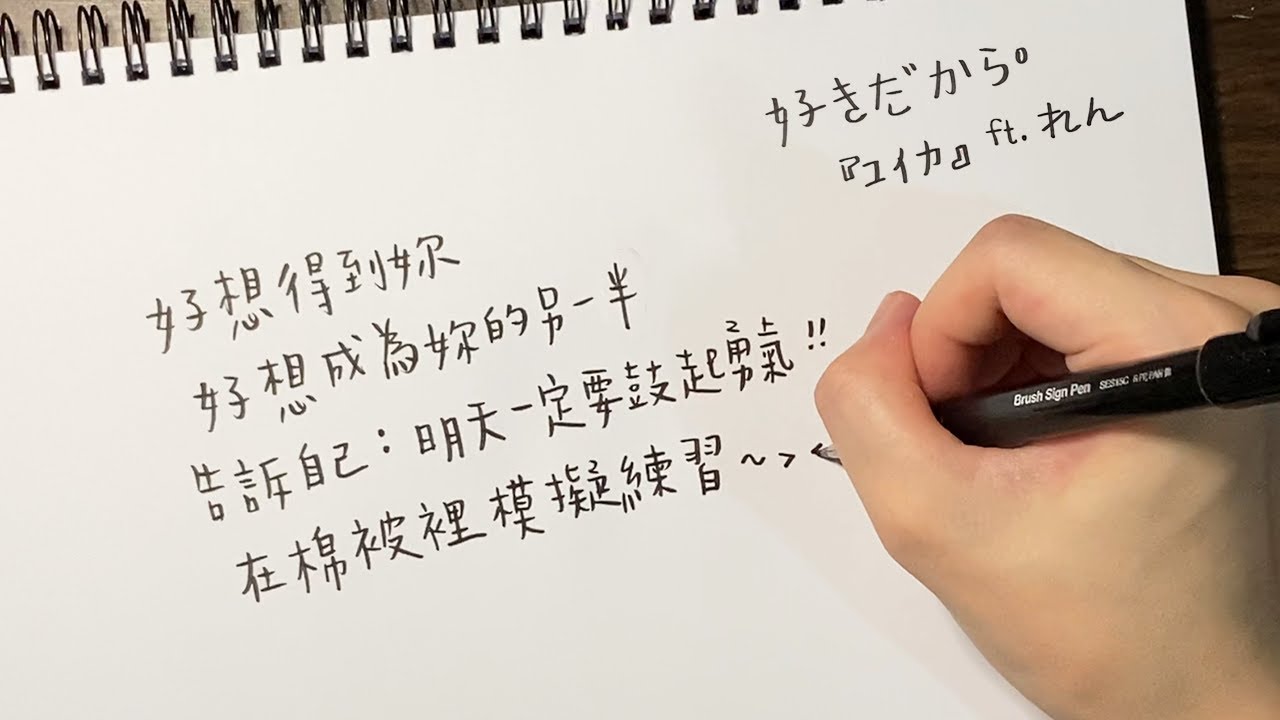 好きだから。
『ユイカ』 ft. れん
好想得到妳
好想成為妳的另一半
告訴自己：明天一定要鼓起勇氣!!
在棉被裡模擬練習~>
Brush Sign Pen